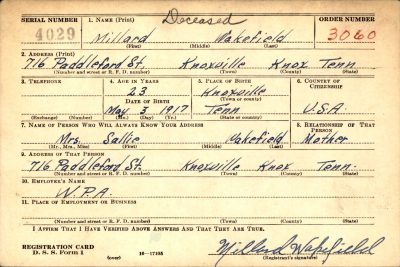 Deceased
SERIAL NUMBER 1. NAME (Print) ORDER NUMBER
4029 Millard Wakefield 3060
(First) (Middle) (Last)
2. ADDRESS (Print)
716 Paddleford St. Knoxville Knox Tenn
(Number and street or R. F. D. number) (Town) (County) (State)
3. TELEPHONE 4. AGE IN YEARS 5. PLACE OF BIRTH 6. COUNTRY OF CITIZENSHIP
23 Knoxville
DATE OF BIRTH (Town or county)
May 3 1917 Tenn U.S.A.
(Exchange) (Number) (Mo.) (Day) (Yr.) (State or country)
7. NAME OF PERSON WHO WILL ALWAYS KNOW YOUR ADDRESS 8. RELATIONSHIP OF THAT PERSON
Mrs. Sallie Wakefield Mother
(Mr., Mrs., Miss) (First) (Middle) (Last)
9. ADDRESS OF THAT PERSON
716 Paddleford St. Knoxville Knox Tenn.
(Number and street or R. F. D. number) (Town) (County) (State)
10. EMPLOYER'S NAME
W.P.A.
11. PLACE OF EMPLOYMENT OR BUSINESS
(Number and street or R. F. D. number) (Town) (County) (State)
I AFFIRM THAT I HAVE VERIFIED ABOVE ANSWERS AND THAT THEY ARE TRUE.
REGISTRATION CARD
D. S. S. Form 1 (over) 16—17105 Millard Wakefield
(Registrant's signature)